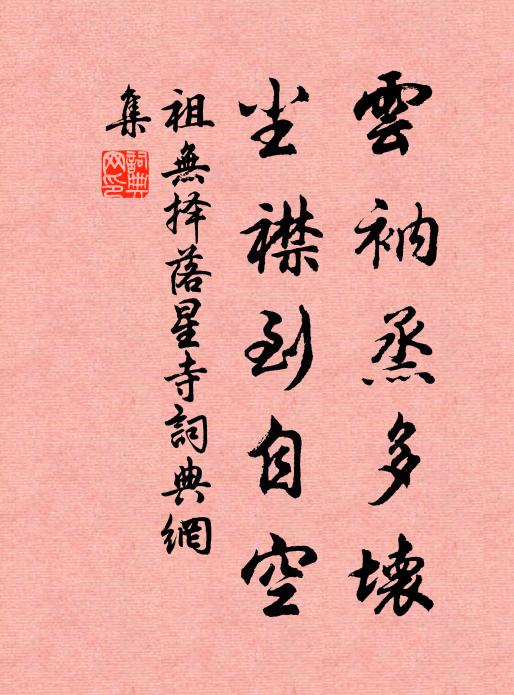 雲衲蒸多壞
尘襟到自空
祖無择落星寺詞典網
集
詞典网印